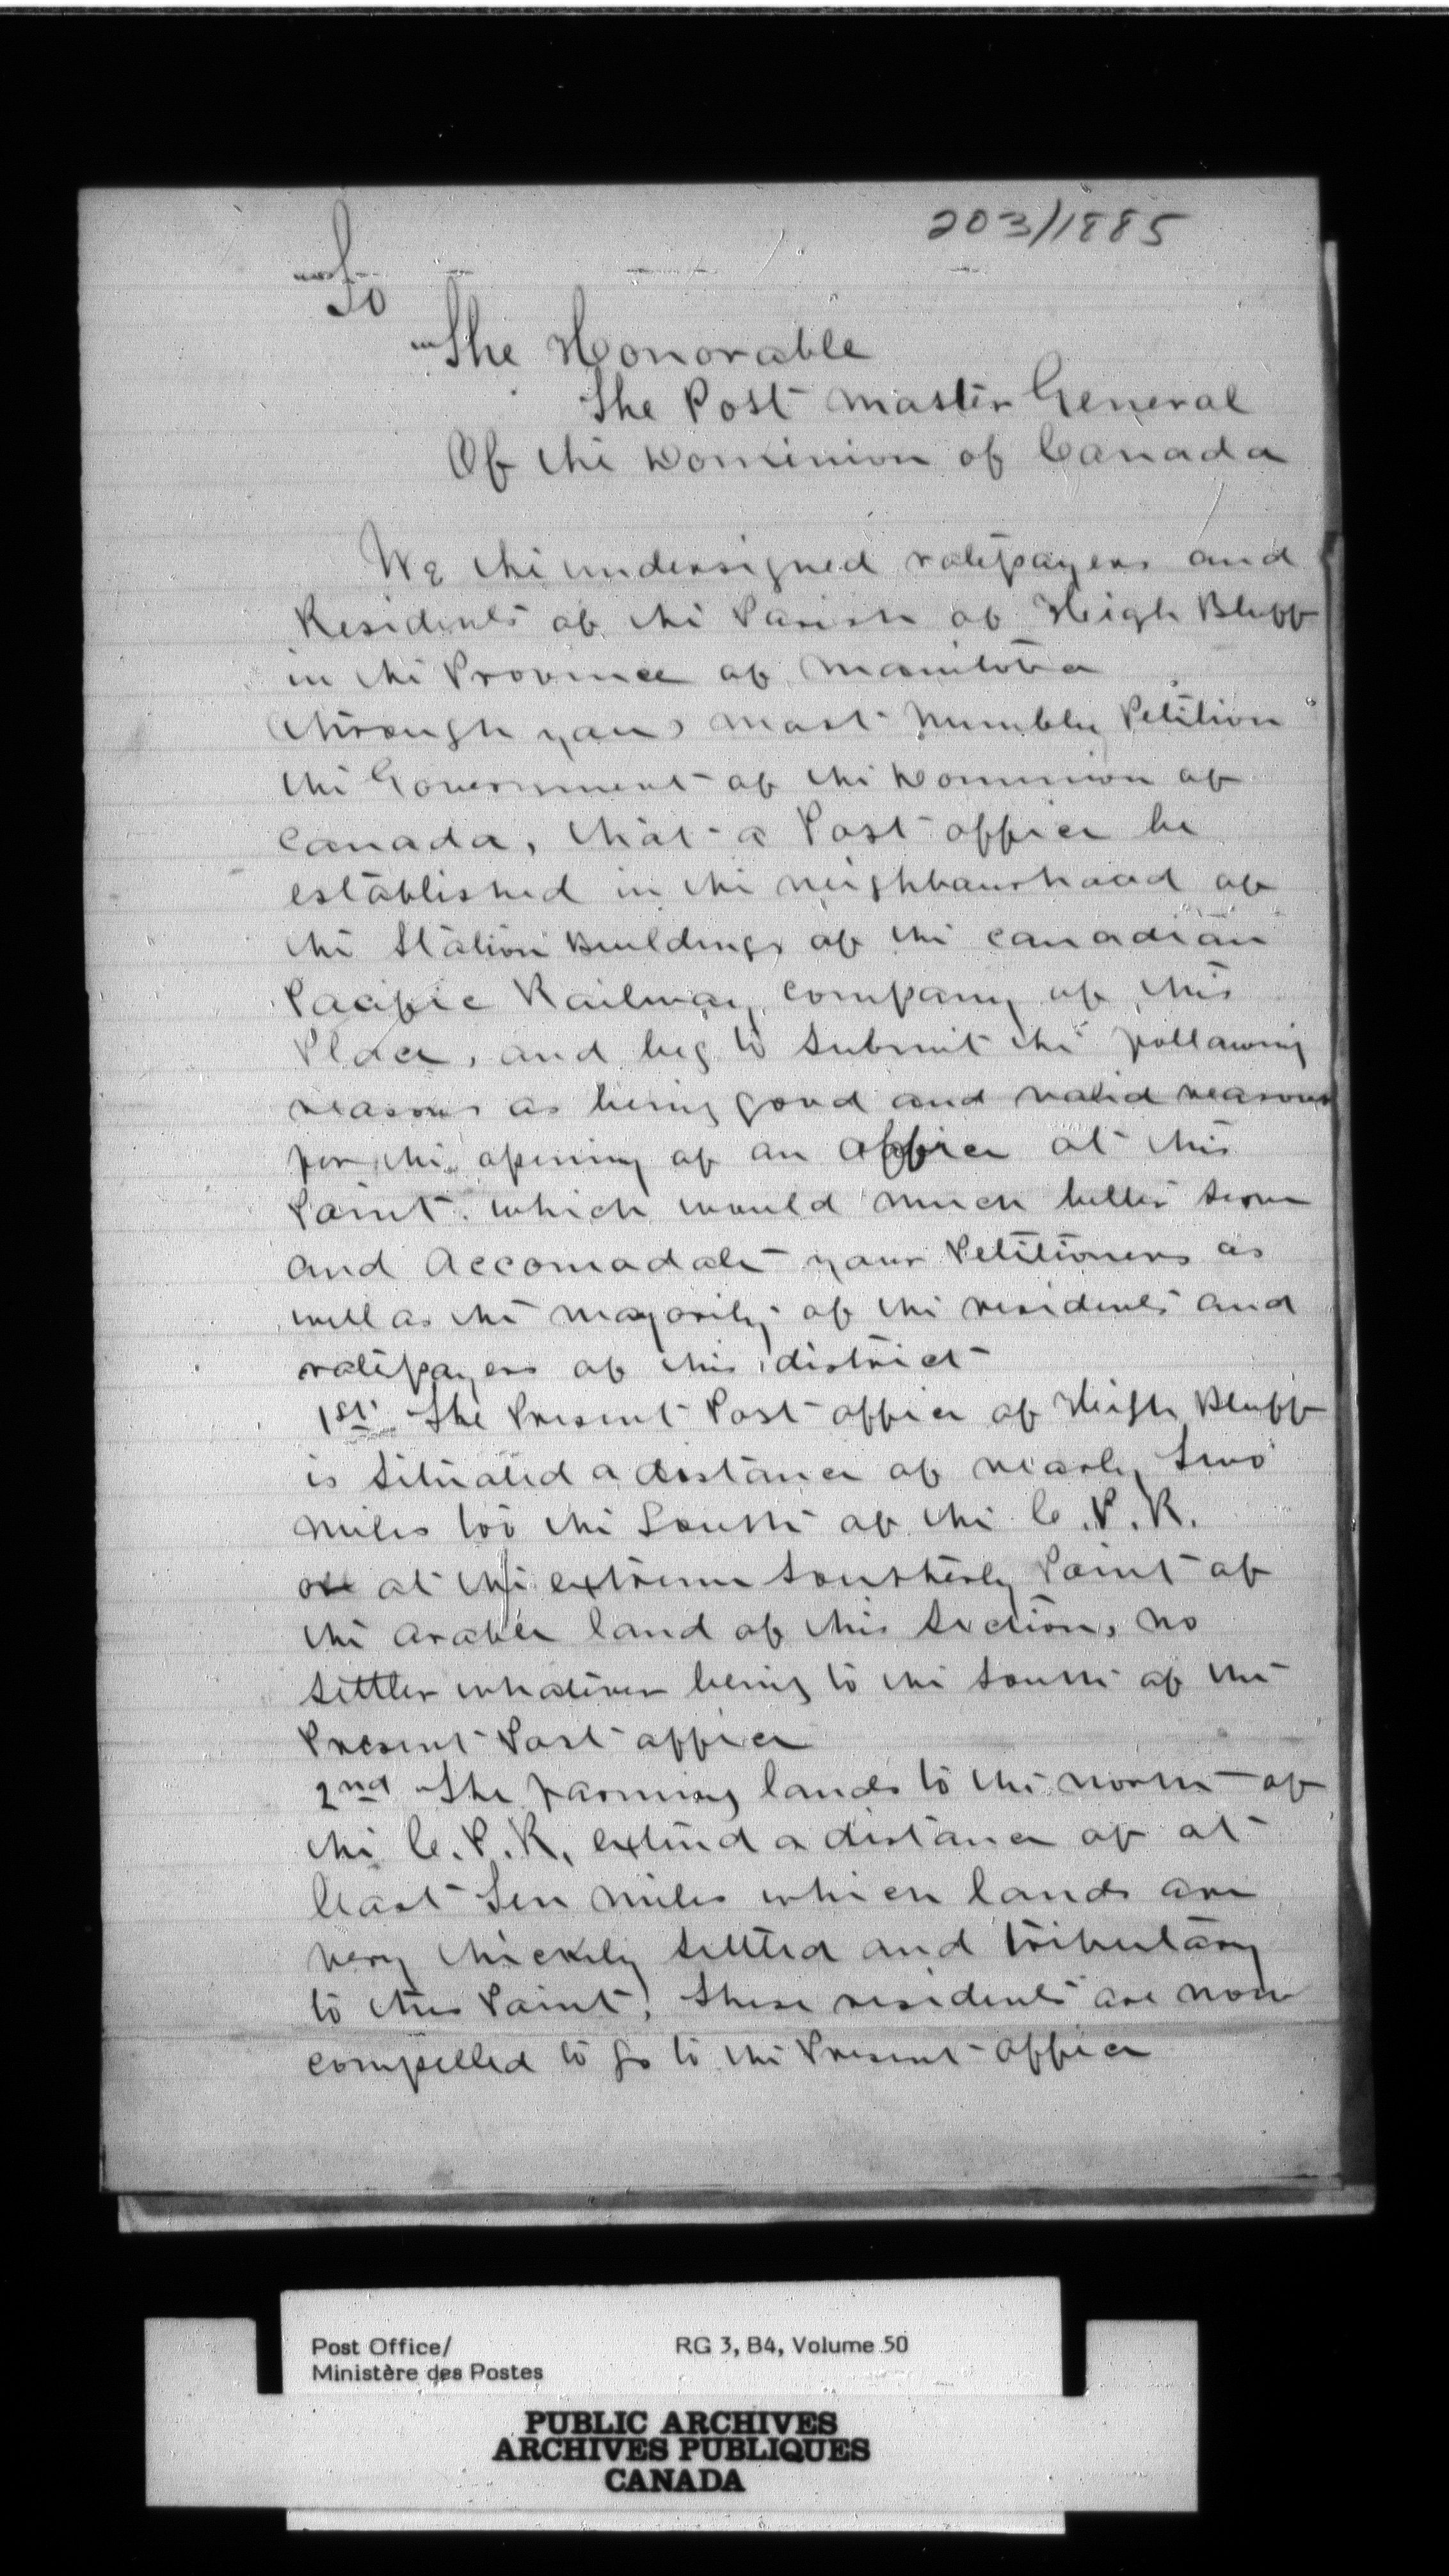 203/1885
To
The Honorable
The Post Master General
Of the Dominion of Canada
We the undersigned ratepayers and
Residents of the Parish of High Bluff
in the Province of Manitoba
through you most humbly Petition
the Government of the Dominion of
Canada, that a Post office be
established in the neighbourhood of
the Station Buildings of the Canadian
Pacific Railway Company of this
Place, and beg to submit the following
reasons as being good and valid reasons
for the opening of an office at this
Point. which would much better serve
and Accomadate your Petitioners as
well as the majority of the residents and
ratepayers of this district
1st. The Present Post office of High Bluff
is situated a distance of nearly two
miles too the South of the C.P.R.
at the extreme southerly Point of
the arable land of this section, no
settler whatever being to the south of the
Present Post office
2nd The farming lands to the north of
the C.P.R. extend a distance of at
least ten miles which lands are
very thickly settled and tributary
to this Point, these residents are now
compelled to go to the Present office
Post Office/
Ministère des Postes
RG 3, B4, Volume 50
PUBLIC ARCHIVES
ARCHIVES PUBLIQUES
CANADA